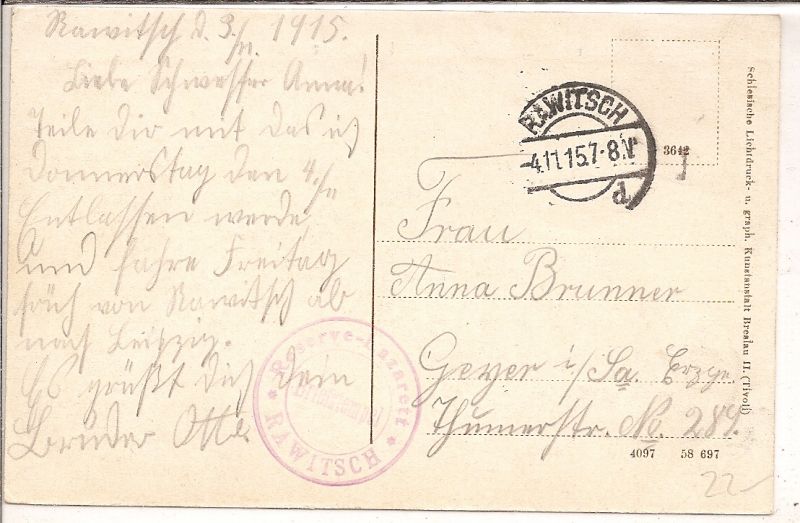 Rawitsch d. 3/11. 1915.
Liebe Schwester Anna!
Teile Dir mit das ich
Donnerstag den 4./11
Entlassen werde
und fahre Freitag
früh von Rawitsch ab
nach Leipzig.
Es grüßt dich dein
Bruder Otto.
Reserve-Lazarett
* RAWITSCH *
RAWITSCH
4.11.15.7-8.V.
d
3642
Frau
Anna Brunner
Geyer i/Sa. Erzge.
Thumerstr. No. 289.
4097 58 697
22-
Schlesische Lichtdruck- u. graph. Kunstanstalt Breslau II. (Tivoli)